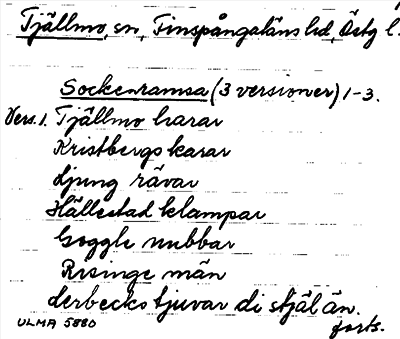 Tjällmo, sn, Finspångaläns hd, Östg l.
Sockenramsa (3 versioner) 1-3.
Vers. 1. Tjällmo harar
Kristbergs karar
Ljung rävar
Hällestad klampar
Goggle nubbar
Risinge män
derbecks tjuvar di stjäl än.
forts.
ULMA 5880